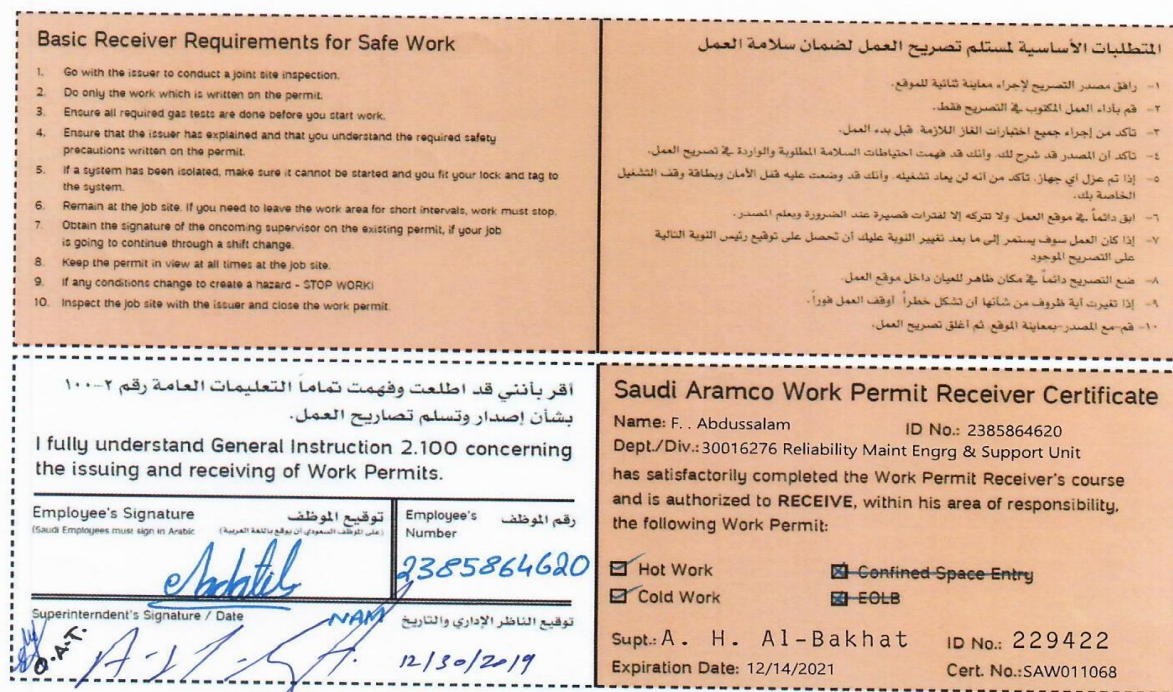 Basic Receiver Requirements for Safe Work
1. Go with the issuer to conduct a joint site inspection.
2. Do only the work which is written on the permit.
3. Ensure all required gas tests are done before you start work.
4. Ensure that the issuer has explained and that you understand the required safety
precautions written on the permit.
5. If a system has been isolated, make sure it cannot be started and you fit your lock and tag to
the system.
6. Remain at the job site. If you need to leave the work area for short intervals, work must stop.
7. Obtain the signature of the oncoming supervisor on the existing permit, if your job
is going to continue through a shift change.
8. Keep the permit in view at all times at the job site.
9. If any conditions change to create a hazard - STOP WORK!
10. Inspect the job site with the issuer and close the work permit.
المتطلبات الأساسية لمستلم تصريح العمل لضمان سلامة العمل
١- رافق مصدر التصريح لإجراء معاينة ثنائية للموقع.
٢- قم بأداء العمل المكتوب في التصريح فقط.
٣- تأكد من إجراء جميع اختبارات الغاز اللازمة قبل بدء العمل.
٤- تأكد أن المصدر قد شرح لك، وأنك قد فهمت احتياطات السلامة المطلوبة والواردة في تصريح العمل.
٥- إذا تم عزل اي جهاز، تأكد من أنه لن يعاد تشغيله، وأنك قد وضعت عليه قفل الأمان وبطاقة وقف التشغيل
الخاصة بك.
٦- ابق دائماً في موقع العمل، ولا تتركه إلا لفترات قصيرة عند الضرورة وبعلم المصدر.
٧- إذا كان العمل سوف يستمر إلى ما بعد تغيير النوبة عليك أن تحصل على توقيع رئيس النوبة التالية
على التصريح الموجود
٨- ضع التصريح دائماً في مكان ظاهر للعيان داخل موقع العمل.
٩- إذا تغيرت أية ظروف من شأنها أن تشكل خطراً أوقف العمل فوراً.
١٠- قم-مع المصدر-بمعاينة الموقع ثم أغلق تصريح العمل.
اقر بأنني قد اطلعت وفهمت تماماً التعليمات العامة رقم ٢-١٠٠
بشأن إصدار وتسلم تصاريح العمل.
I fully understand General Instruction 2.100 concerning
the issuing and receiving of Work Permits.
Employee's Signature توقيع الموظف
(Saudi Employees must sign in Arabic (على الموظف السعودي أن يوقع باللغة العربية)
Employee's رقم الموظف
Number
2385864620
Superinterndent's Signature / Date NAM توقيع الناظر الإداري والتاريخ
O.A.T.
12/30/2019
Saudi Aramco Work Permit Receiver Certificate
Name: F. . Abdussalam ID No.: 2385864620
Dept./Div.: 30016276 Reliability Maint Engrg & Support Unit
has satisfactorily completed the Work Permit Receiver's course
and is authorized to RECEIVE, within his area of responsibility,
the following Work Permit:
Hot Work Confined Space Entry
Cold Work EOLB
Supt.: A. H. Al-Bakhat ID No.: 229422
Expiration Date: 12/14/2021 Cert. No.:SAW011068